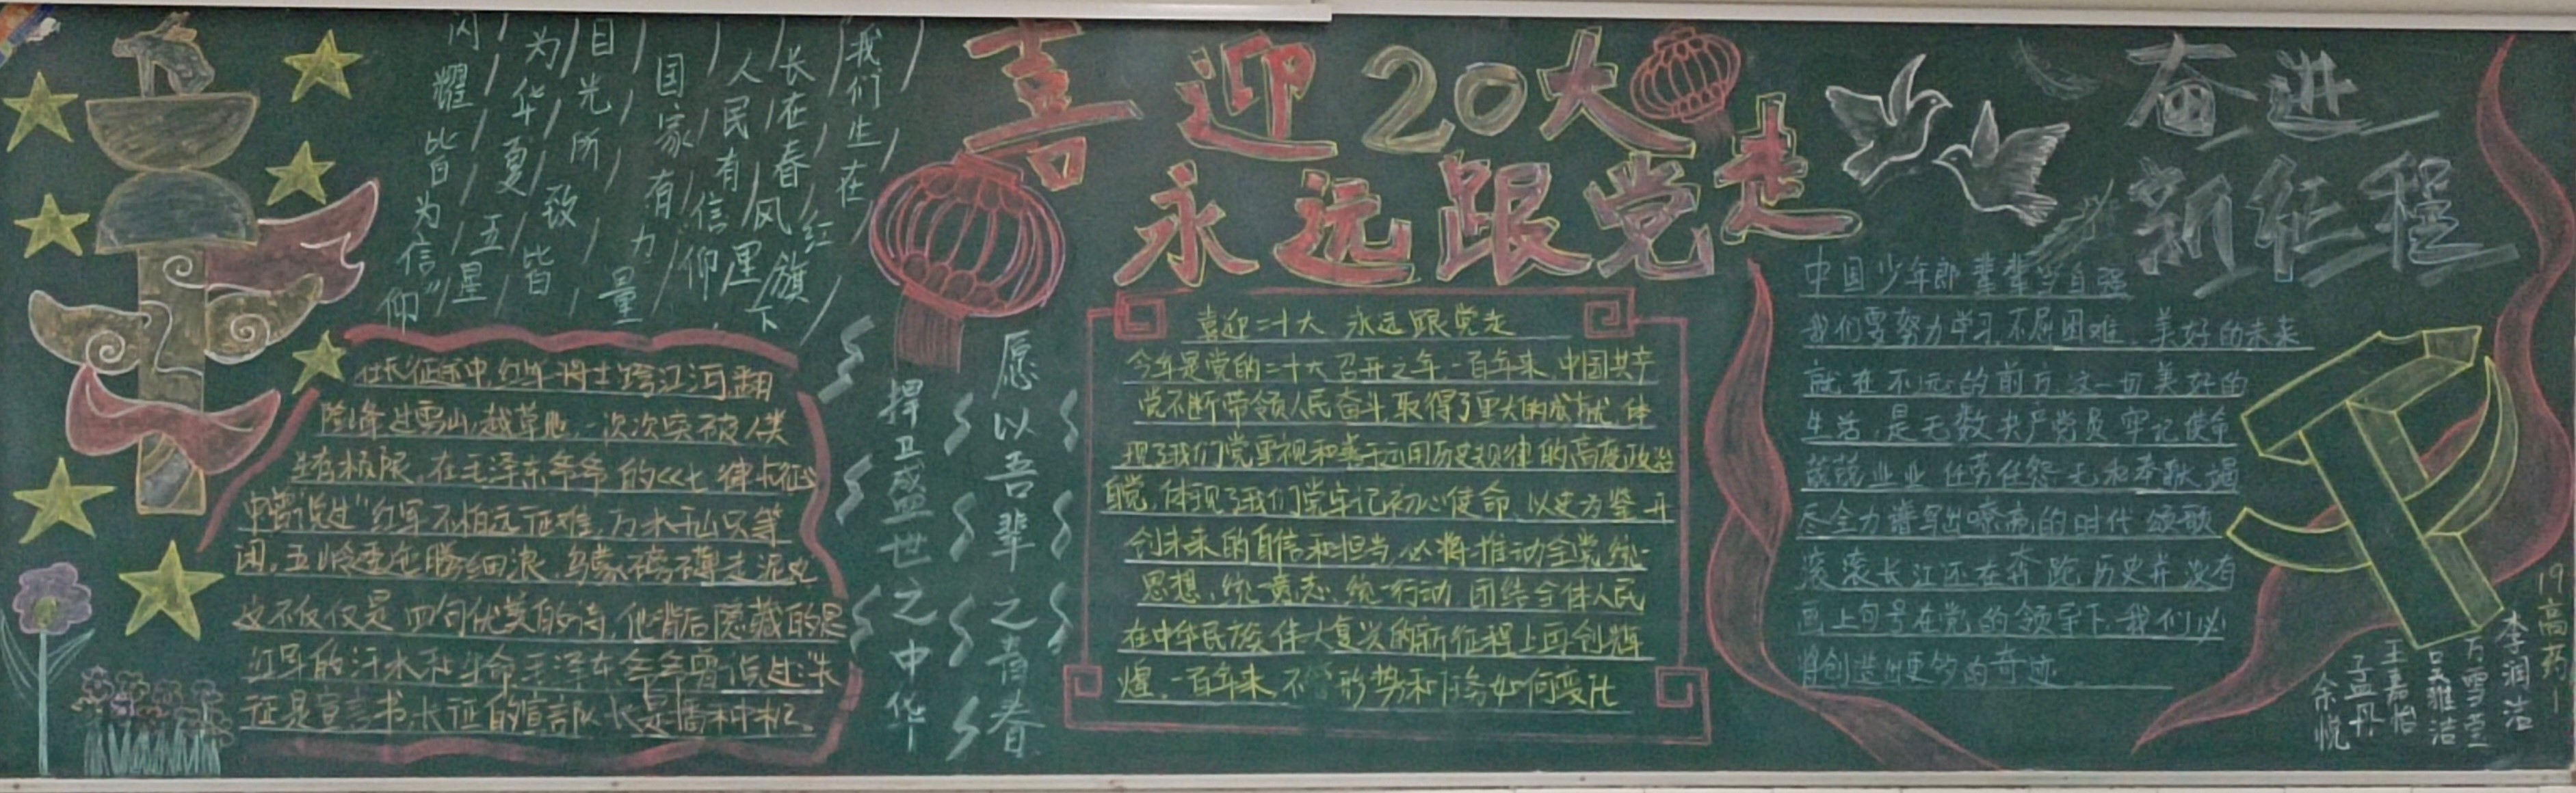 喜迎20大
永远跟党走
奋进
新征程
"我们生在红旗下
长在春风里
人民有信仰
国家有力量
目光所致皆
为华夏五星
闪耀皆为信仰"
红军将士跨江河翻
险峰过雪山越草地,一次次突破人类
生存极限,在毛泽东爷爷的《七律长征》
中曾说过"红军不怕远征难,万水千山只等
闲,五岭逶迤腾细浪,乌蒙磅礴走泥丸
这不仅仅是四句优美的诗,他背后隐藏的是
红军的汗水和生命毛泽东爷爷曾说过"长
征是宣言书长征的宣言队长是播种机。
愿以吾辈之青春
捍卫盛世之中华
喜迎二十大 永远跟党走
今年是党的二十大召开之年一百年来中国共产
党不断带领人民奋斗取得了重大的成就,体
现了我们党重视和善于运用历史规律的高度政治
自觉,体现了我们党牢记初心使命,以史为鉴开
创未来的自信和担当,必将推动全党统一
思想,统一意志,统一行动 团结全体人民
在中华民族伟大复兴的新征程上再创辉
煌,一百年来 不管形势和任务如何变化
中国少年郎辈辈当自强
我们要努力学习,不屈困难,美好的未来
就在不远的前方,这一切美好的
生活,是无数共产党员牢记使命
兢兢业业 任劳任怨无私奉献竭
尽全力谱写出嘹亮的时代颂歌
滚滚长江还在奔跑历史并没有
画上句号在党的领导下,我们必
将创造出更多的奇迹
19高药1
李润洁
万雪萱
吴雅洁
王嘉怡
孟丹
余悦